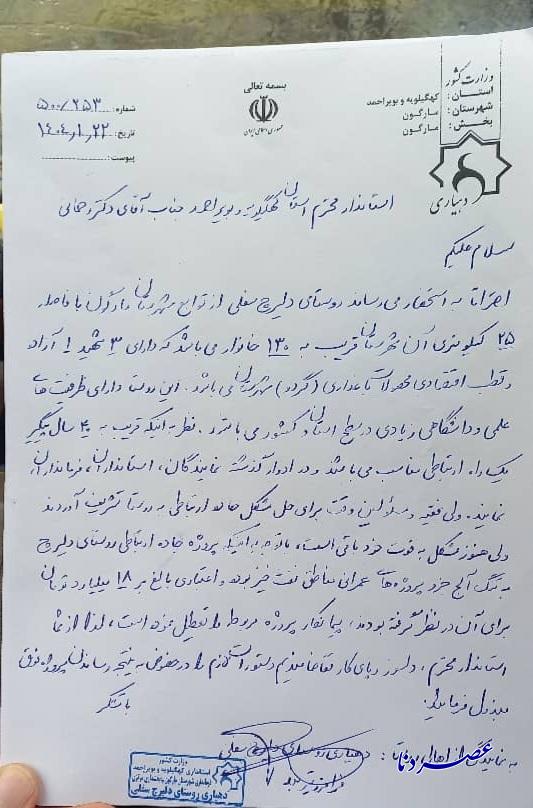 بسمه تعالی
جمهوری اسلامی ایران
وزارت کشور
استان: کهگیلویه و بویراحمد
شهرستان: مارگون
بخش: مارگون
دهیاری
شماره: ۵۰۰/۲۵۳
تاریخ: ۱۴۰۴/۱/۲۲
پیوست:
استاندار محترم استان کهگیلویه و بویراحمد جناب آقای دکتر رحمانی
سلام علیکم
احتراماً به استحضار می رساند روستای دلیرچ سفلی از توابع شهرستان مارگون با فاصله
۲۵ کیلومتری آن شهرستان قریب به ۱۳۰ خانوار می باشد که دارای ۳ شهید ۱ آزاده
و قطب اقتصادی محصولات باغداری (گردو) شهرستان می باشد. این روستا دارای ظرفیت های
علمی و دانشگاهی زیادی در سطح استان و کشور می باشد. نظر به اینکه قریب به ۴۰ سال پیگیر
یک راه ارتباطی مناسب می باشند و در ادوار گذشته نمایندگان، استانداران، فرمانداران
نماینده ولی فقیه و مسئولین وقت برای حل مشکل جاده ارتباطی به روستا تشریف آوردند
ولی هنوز مشکل به قوت خود باقی است، با توجه به اینکه پروژه جاده ارتباطی روستای دلیرچ
به تنگ آلج جزء پروژه های عمرانی مناطق نفت خیز بوده و اعتباری بالغ بر ۱۸ میلیارد تومان
برای آن در نظر گرفته بودند، پیمانکار پروژه مربوطه را تعطیل نموده است، لذا از شما
استاندار محترم، دلسوز و پای کار تقاضامندیم دستورات لازم را در خصوص به نتیجه رساندن پروژه فوق
مبذول فرمایید.
با تشکر
به نمایندگی از اهالی روستا: دهیاری روستای دلیرچ سفلی
عصر دنا
وزارت کشور
استانداری کهگیلویه و بویراحمد
دهیاری روستای دلیرچ سفلی